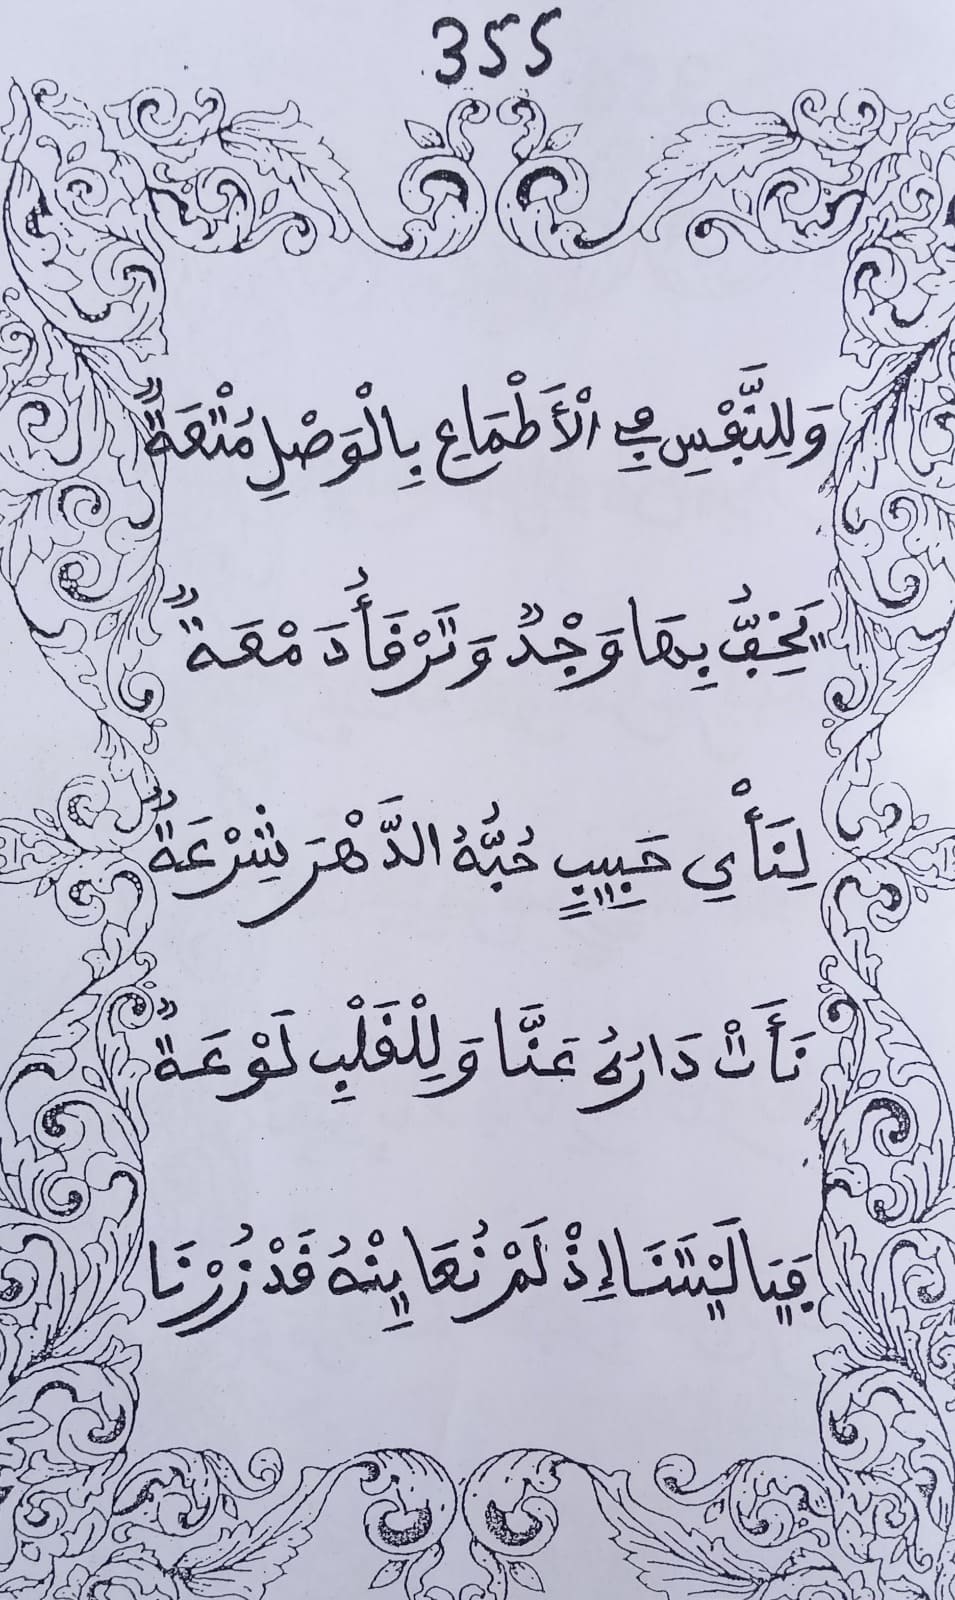 355
وَلِلنَّفْسِ فِي الْأَطْمَاعِ بِالْوَصْلِ مُتْعَةٌ
يَخِفُّ بِهَا وَجْدٌ وَتَرْقَأُ دَمْعَةٌ
لِنَأْيِ حَبِيبٍ حُبُّهُ الدَّهْرَ شِرْعَةٌ
نَأَتْ دَارُهُ عَنَّا وَلِلْقَلْبِ لَوْعَةٌ
فَيَا لَيْتَنَا إِذْ لَمْ نُعَايِنْهُ قَدْ زُرْنَا